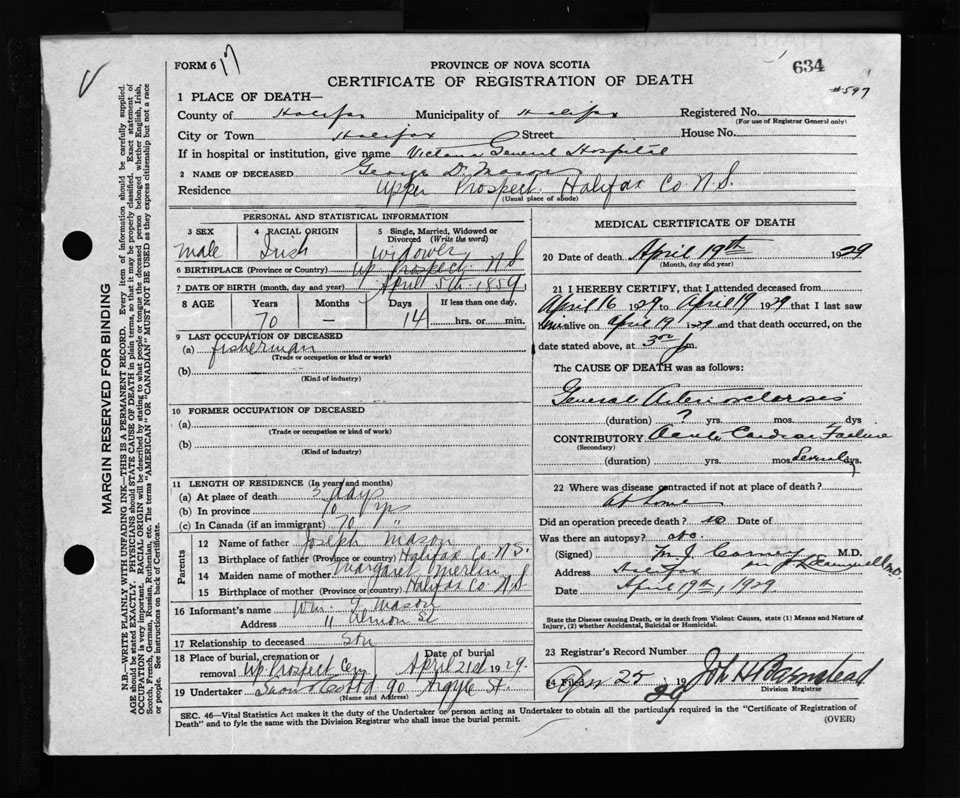 FORM 6
17
PROVINCE OF NOVA SCOTIA
634
CERTIFICATE OF REGISTRATION OF DEATH
#597
1 PLACE OF DEATH—
County of Halifax Municipality of Halifax Registered No.
(For use of Registrar General only)
City or Town Halifax Street House No.
If in hospital or institution, give name Victoria General Hospital
2 NAME OF DECEASED George D. Mason
Residence Upper Prospect. Halifax Co N.S.
(Usual place of abode)
PERSONAL AND STATISTICAL INFORMATION
3 SEX 4 RACIAL ORIGIN 5 Single, Married, Widowed or Divorced (Write the word)
Male Irish Widower
6 BIRTHPLACE (Province or Country) Up. Prospect N S
7 DATE OF BIRTH (month, day and year) April 5th 1859
8 AGE Years Months Days If less than one day,
70 — 14 hrs. or min.
9 LAST OCCUPATION OF DECEASED
(a) fisherman
(Trade or occupation or kind of work)
(b)
(Kind of industry)
10 FORMER OCCUPATION OF DECEASED
(a)
(Trade or occupation or kind of work)
(b)
(Kind of industry)
11 LENGTH OF RESIDENCE (In years and months)
(a) At place of death 3 days
(b) In province 70 yrs
(c) In Canada (if an immigrant) 70 "
Parents
12 Name of father Joseph Mason
13 Birthplace of father (Province or country) Halifax Co N.S.
14 Maiden name of mother Margaret Merlin
15 Birthplace of mother (Province or country) Halifax Co N S
16 Informant's name Wm. J Mason
Address 11 Almon St
17 Relationship to deceased Son
18 Place of burial, cremation or removal Up Prospect Cem Date of burial April 21st 1929.
19 Undertaker 90 Argyle St.
(Name and Address)
MEDICAL CERTIFICATE OF DEATH
20 Date of death April 19th 1929
(Month, day and year)
21 I HEREBY CERTIFY, that I attended deceased from
April 16 1929 to April 19 1929 that I last saw
him alive on April 19 1929 and that death occurred, on
date stated above, at 3 00 p m.
The CAUSE OF DEATH was as follows:
General Arteriosclerosis
(duration) ? yrs. mos. dys
CONTRIBUTORY Acute Cardiac Failure
(Secondary)
(duration) yrs. mos. Several dys.
22 Where was disease contracted if not at place of death?
At home
Did an operation precede death? no Date of
Was there an autopsy? no.
(Signed) M. J. Carney M.D.
Address Halifax
Date April 19th, 1929.
State the Disease causing Death, or in death from Violent Causes, state (1) Means and Nature of Injury, (2) whether Accidental, Suicidal or Homicidal.
23 Registrar's Record Number
24 Filed Apr 25 1929 John H Barnstead
Division Registrar
SEC. 46—Vital Statistics Act makes it the duty of the Undertaker or person acting as Undertaker to obtain all the particulars required in the "Certificate of Registration of
Death" and to fyle the same with the Division Registrar who shall issue the burial permit.
(OVER)
MARGIN RESERVED FOR BINDING
N.B.—WRITE PLAINLY WITH UNFADING INK—THIS IS A PERMANENT RECORD. Every item of information should be carefully supplied.
AGE should be stated EXACTLY. PHYSICIANS should STATE CAUSE OF DEATH in plain terms, so that it may be properly classified. Exact statement of
OCCUPATION is very important. RACIAL ORIGIN will be described by stating to what people or tongue the deceased person belonged whether English, Irish,
Scotch, French, German, Russian, Ruthenian, etc. The terms "AMERICAN" OR "CANADIAN" MUST NOT BE USED as they express citizenship but not a race
or people. See instructions on back of Certificate.